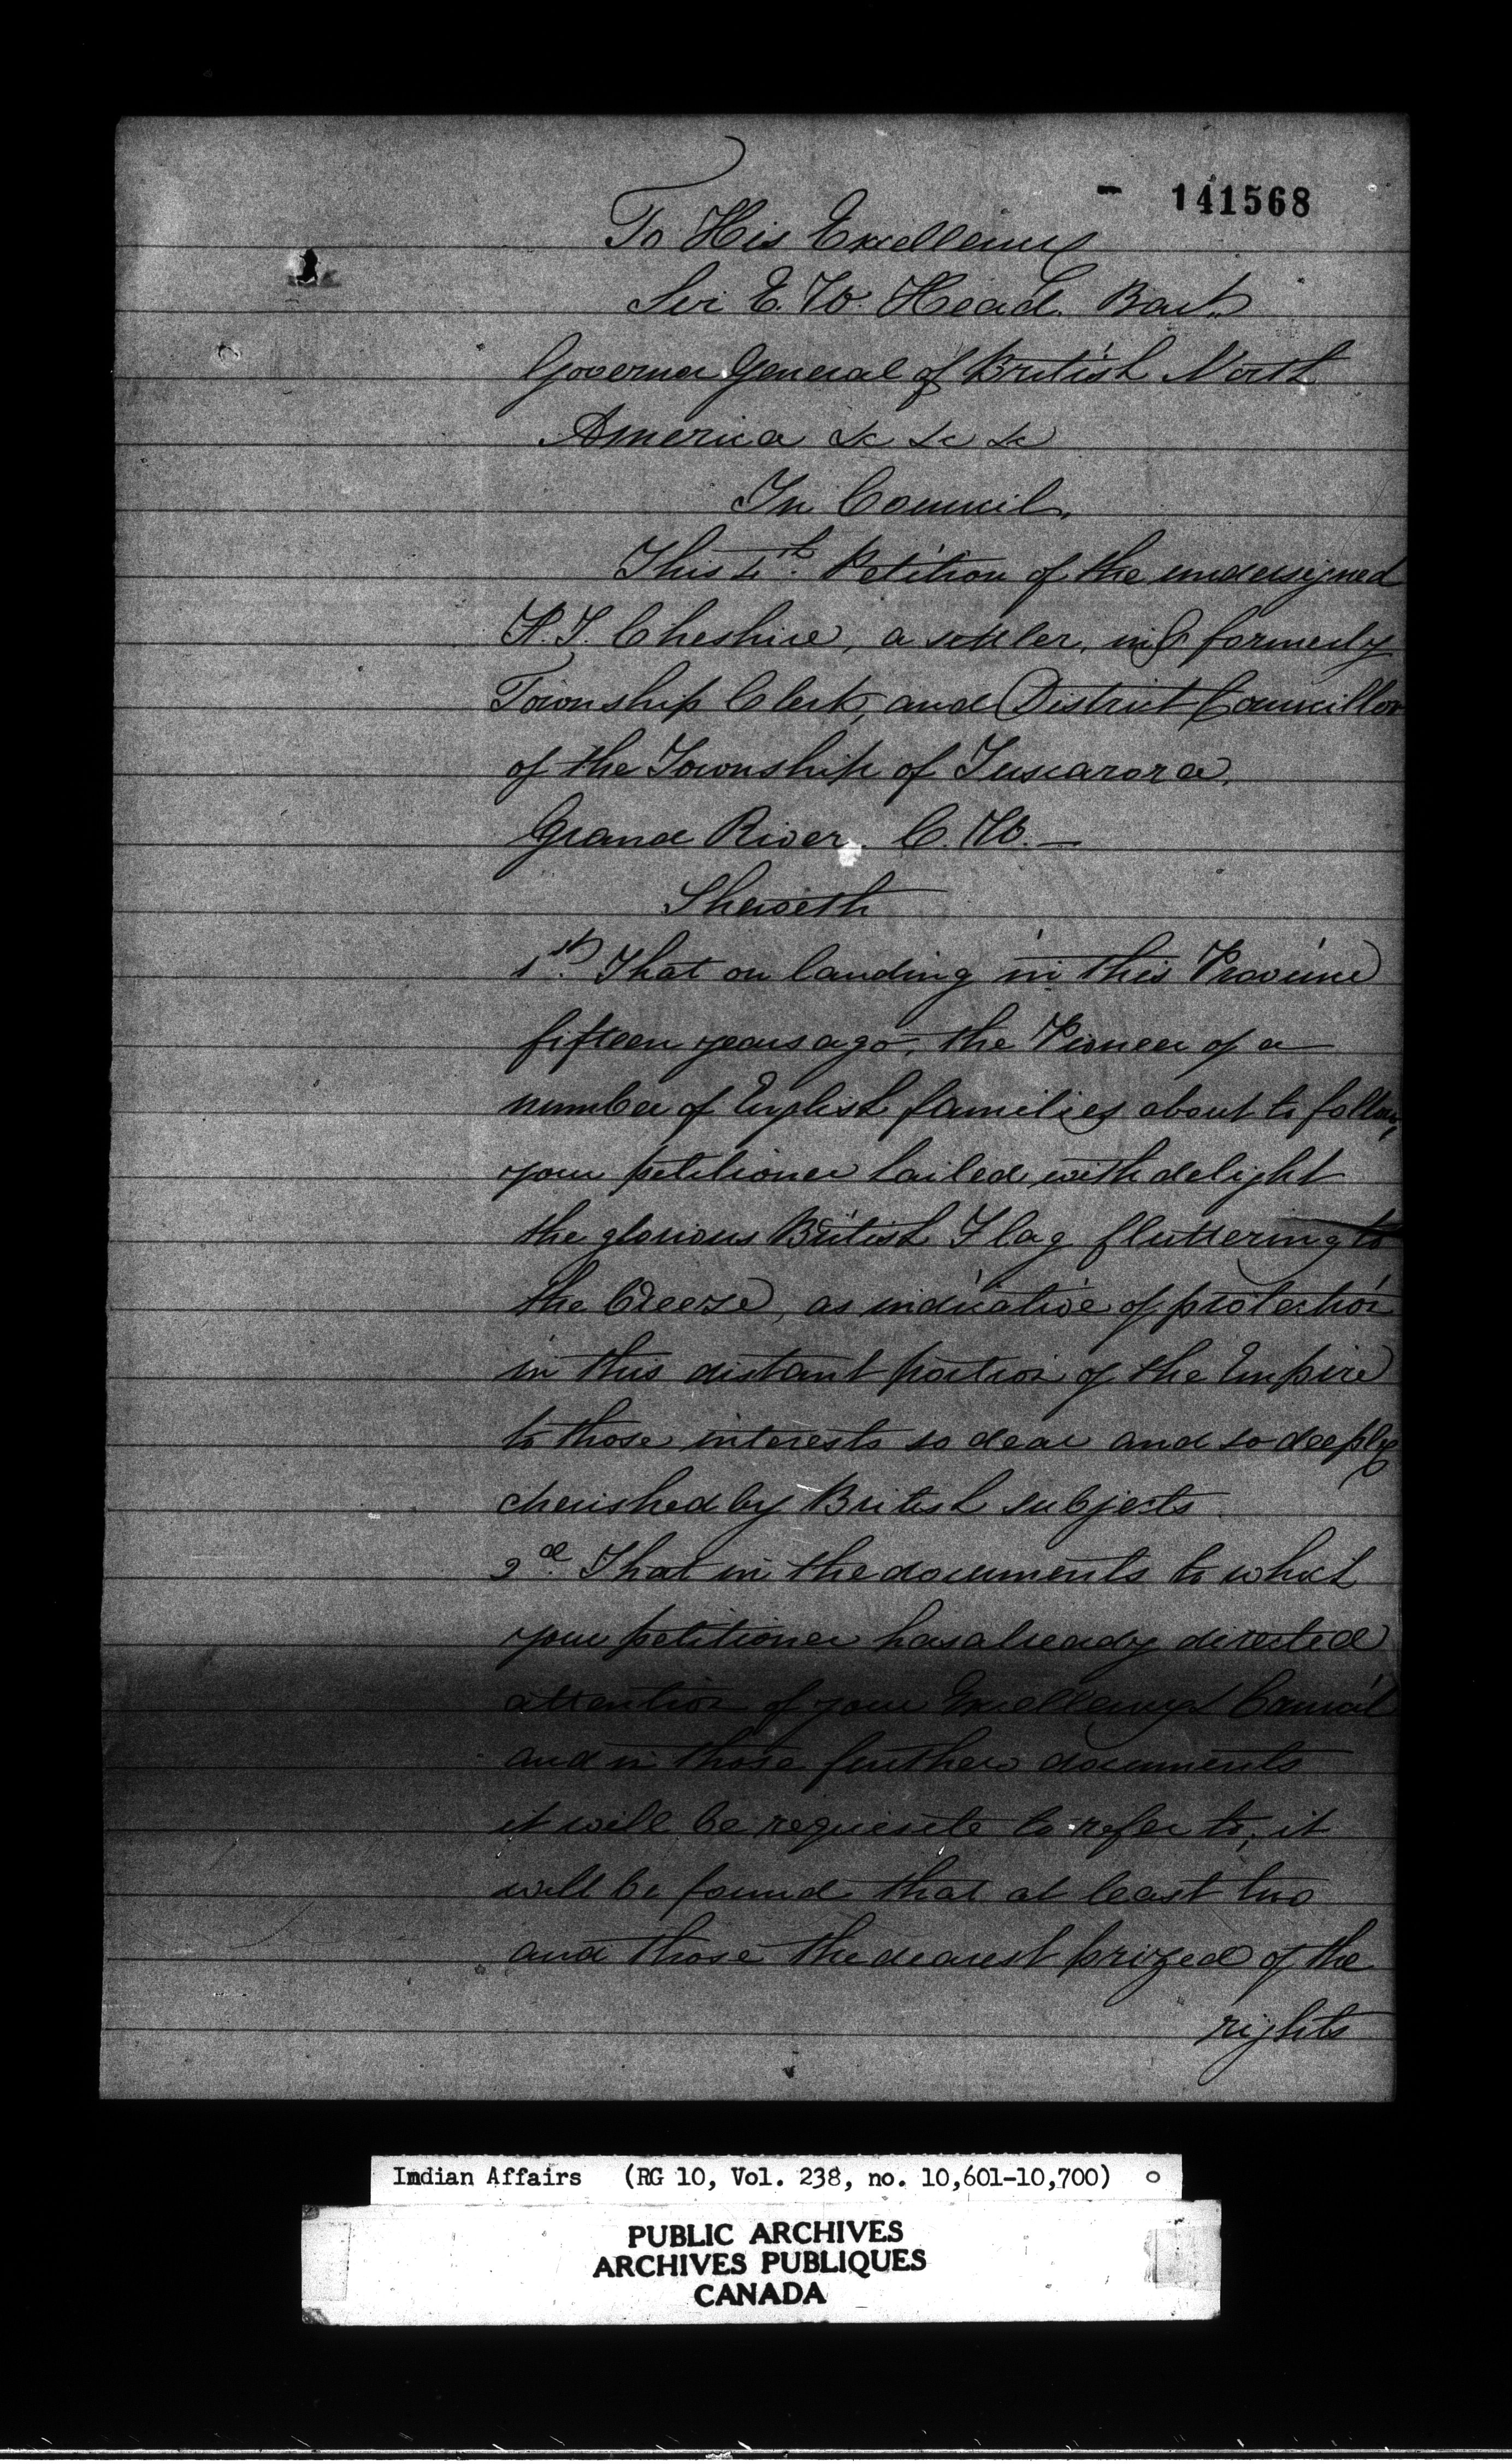 141568
To His Excellency
Sir E. W. Head. Bart.
Governor General of British North
America &c &c &c
In Council.
This 4th. Petition of the undersigned
T. Cheshire, a settler, in & formerly
Township Clerk, and District Councillor
of the Township of Tuscarora,
Grand River. C. W. —
Sheweth
1st. That on landing in this Province
fifteen years ago, the Pioneer of a
number of English families about to follow,
your petitioner hailed with delight
the glorious British Flag fluttering to
the breeze, as indicative of protection
in this distant portion of the Empire
to those interests so dear and so deeply
cherished by British subjects.
2d. That in the documents to which
your petitioner has already directed
attention of your Excellency & Council
and in those further documents
it will be requisite to refer to, it
will be found that at least two
and those the dearest prized of the
rights
Indian Affairs (RG 10, Vol. 238, no. 10,601-10,700)
PUBLIC ARCHIVES
ARCHIVES PUBLIQUES
CANADA